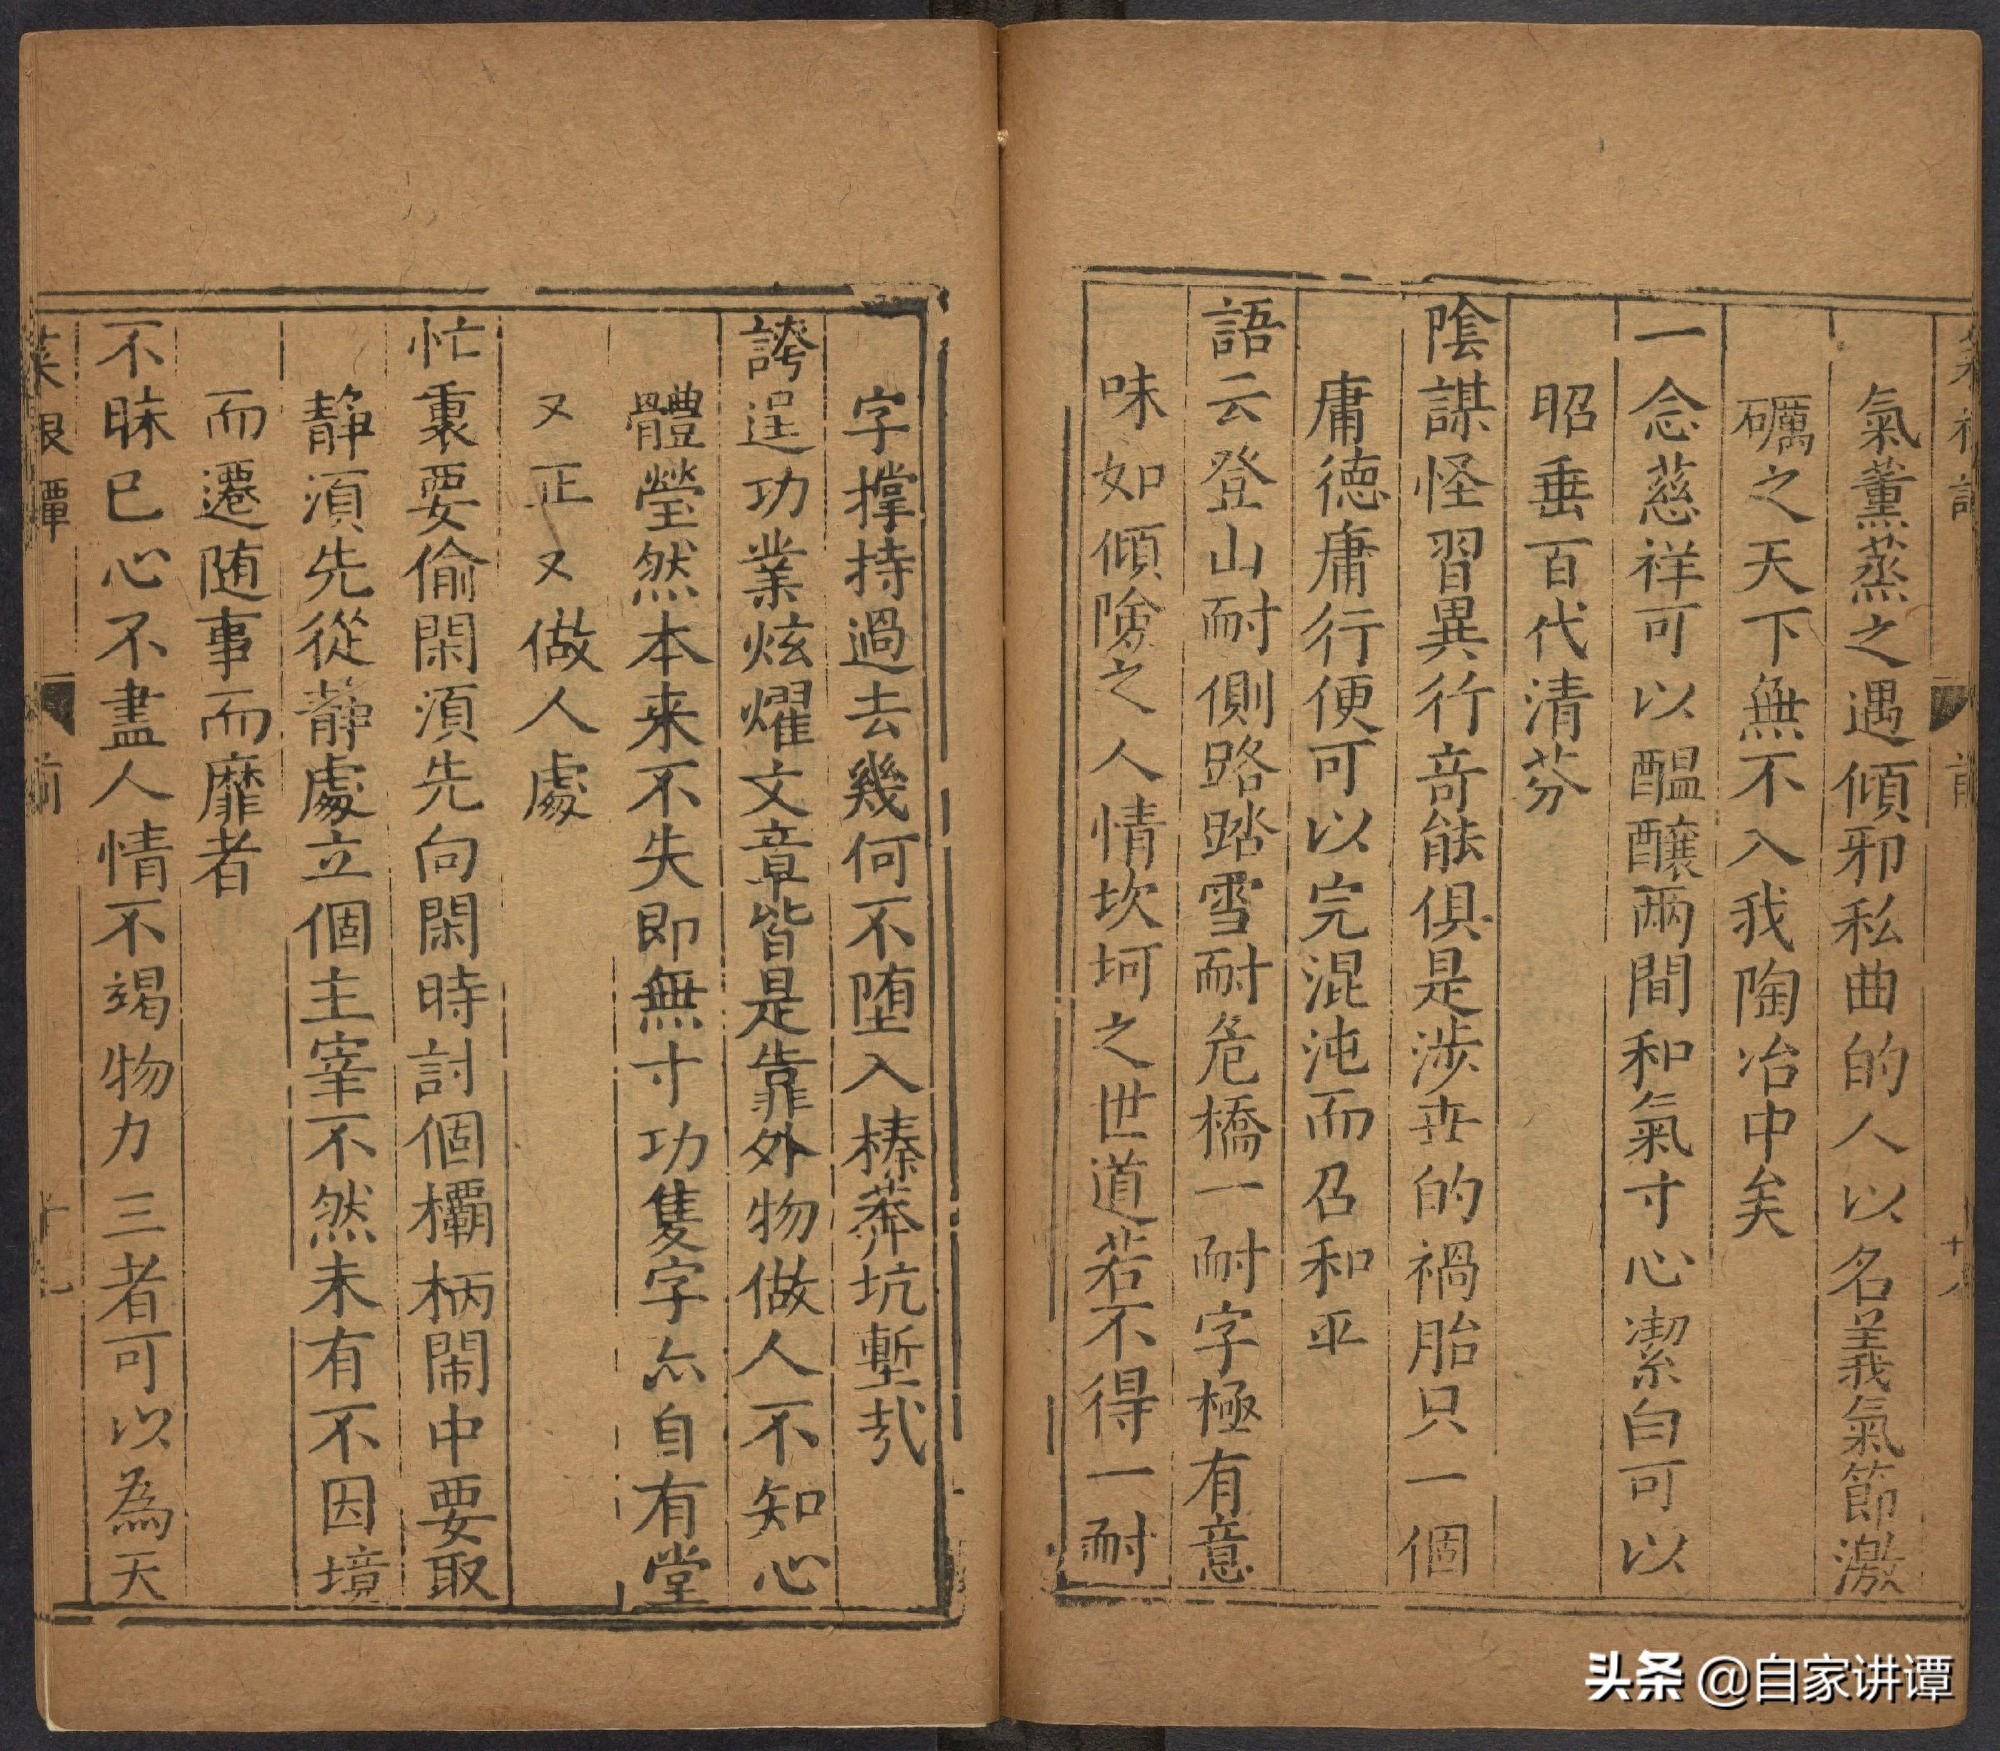 氣薰蒸之遇傾邪私曲的人以名義氣節激
礪之天下無不入我陶冶中矣
一念慈祥可以醞釀兩間和氣寸心潔白可以
昭垂百代清芬
陰謀怪習異行奇能俱是涉世的禍胎只一個
庸德庸行便可以完混沌而召和平
語云登山耐側路踏雪耐危橋一耐字極有意
味如傾險之人情坎坷之世道若不得一耐
字撑持過去幾何不堕入榛莽坑塹哉
誇逞功業炫燿文章皆是靠外物做人不知心
體瑩然本来不失即無寸功隻字亦自有堂
又正又做人處
忙裏要偷閑湏先向閑時討個欛柄閙中要取
静湏先從静處立個主宰不然未有不因境
而遷随事而靡者
不昧已心不盡人情不竭物力三者可以為天
菜根譚 前
头条 @自家讲谭